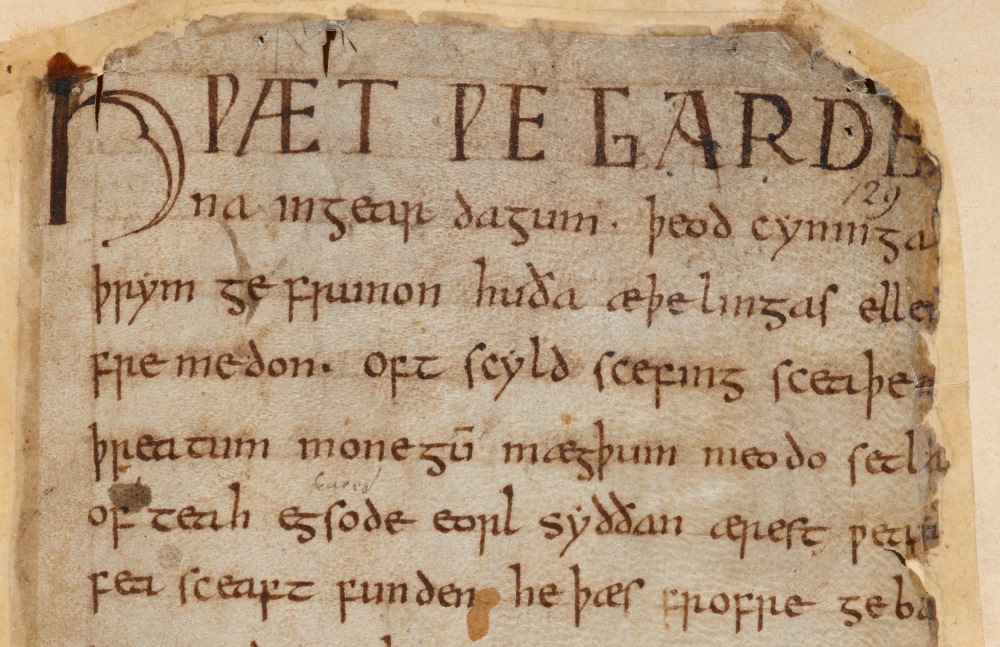 HǷÆT ǷE GARDE
129
na ingear dagum. þeod cyninga
þrym ge frunon huða æþelingas ellen
fremedon. oft scyld scefing sceaþen
þreatum monegū mægþum meodo setla
of teah egsode eorl syððan ærest ƿearð
fea sceaft funden he þæs frofre geba